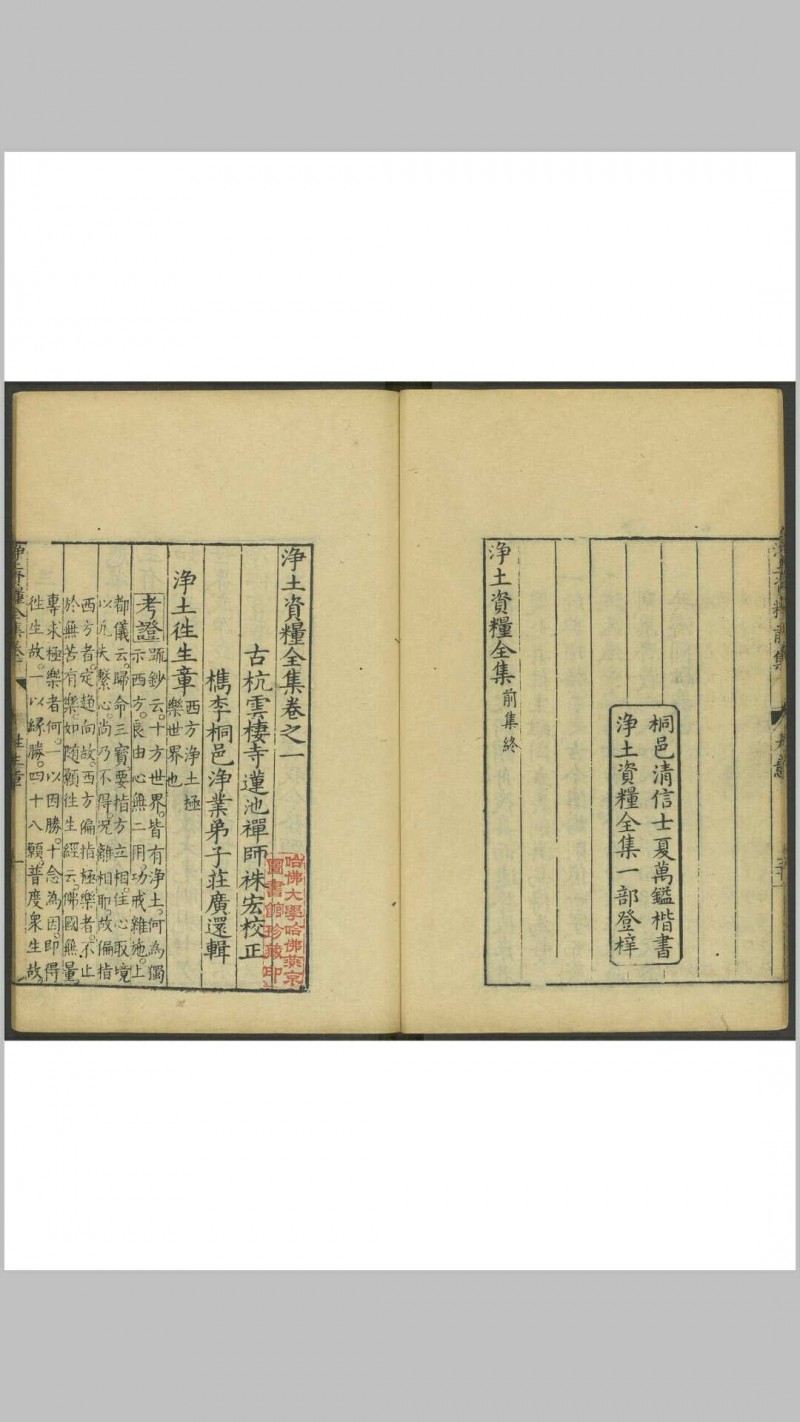 桐邑清信士夏萬鑑楷書
淨土資糧全集一部登梓
淨土資糧全集前集終
淨土資糧全集卷之一
古杭雲棲寺蓮池禪師袾宏校正
檇李桐邑淨業弟子莊廣還輯
淨土徃生章
西方淨土極
樂世界也
考證
疏鈔云。十方世界。皆有淨土。何為獨
示西方。良由心無二用。功戒雜施。上
都儀云。歸命三寶。要指方立相。住心取境
以凡夫繫心。尚乃不得。况離相耶。故偏指
西方者。定趣向故。西方偏指極樂者。不止
於無苦有樂。如隨願徃生經云。佛國無量。
專求極樂者何。一以因勝。十念為因。即得
徃生故。一以縁勝。四十八願。普度衆生故。
哈佛大學哈佛燕京
圖書館珍藏印